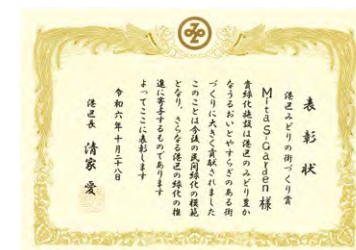 表彰状
港区みどりの街づくり賞
Mita S-Garden 様
貴緑化施設は港区のみどり豊か
なうるおいとやすらぎのある街
づくりに大きく貢献されました
このことは今後の民間緑化の模範
となり、さらなる港区の緑化の推
進に寄与するものであります
よってここに表彰します
令和六年十月二十八日
港区長 清家 愛